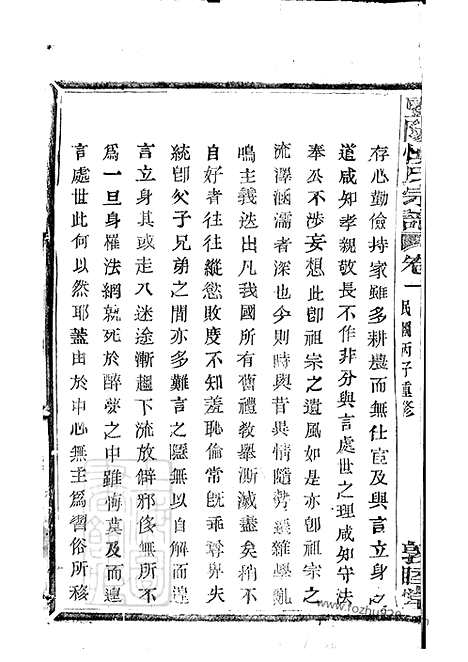 氏宗譜 卷一 民國丙子重修 敦睦堂
存心勤儉持家雖多耕農而無仕宦及與言立身之
道咸知孝親敬長不作非分與言處世之理咸知守法
奉公不涉妄想此卽祖宗之遺風如是亦卽祖宗之
流澤涵濡者深也今則時與昔異情隨勢遷雜學亂
鳴主義迭出凡我國所有舊禮敎舉澌滅盡矣稍不
自好者往往縱慾敗度不知羞恥倫常旣乖尊卑失
統卽父子兄弟之間亦多難言之隱無以自解而遑
言立身其或走入迷途漸趨下流放僻邪侈無所不
爲一旦身罹法網就死於醉夢之中雖悔莫及而遑
言處世此何以然耶蓋由於中心無主爲習俗所移
www.fozhu920.com